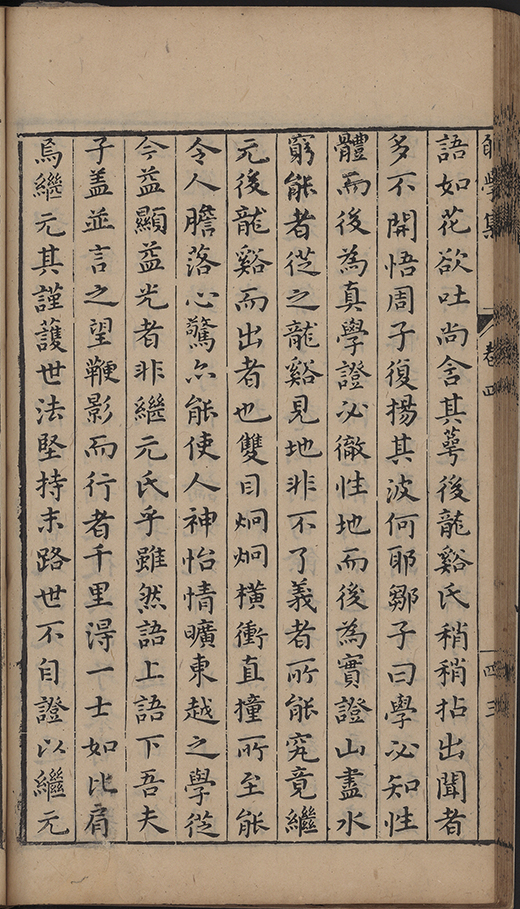 語如花欲吐尚含其萼後龍谿氏稍稍拈出聞者
多不開悟周子復揚其波何耶鄒子曰學必知性
體而後為真學證必徹性地而後為實證山盡水
窮能者從之龍谿見地非不了義者所能究竟繼
元後龍谿而出者也雙目炯炯橫衝直撞所至能
令人膽落心驚亦能使人神怡情曠東越之學從
今益顯益光者非繼元氏乎雖然語上語下吾夫
子盖並言之望鞭影而行者千里得一士如比肩
焉繼元其謹護世法堅持末路世不自證以繼元
學集
卷四
四三